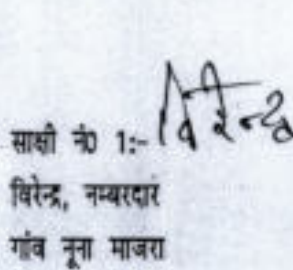 साक्षी नं0 1:- विरेन्द्र
विरेन्द्र, नम्बरदार
गांव नूना माजरा